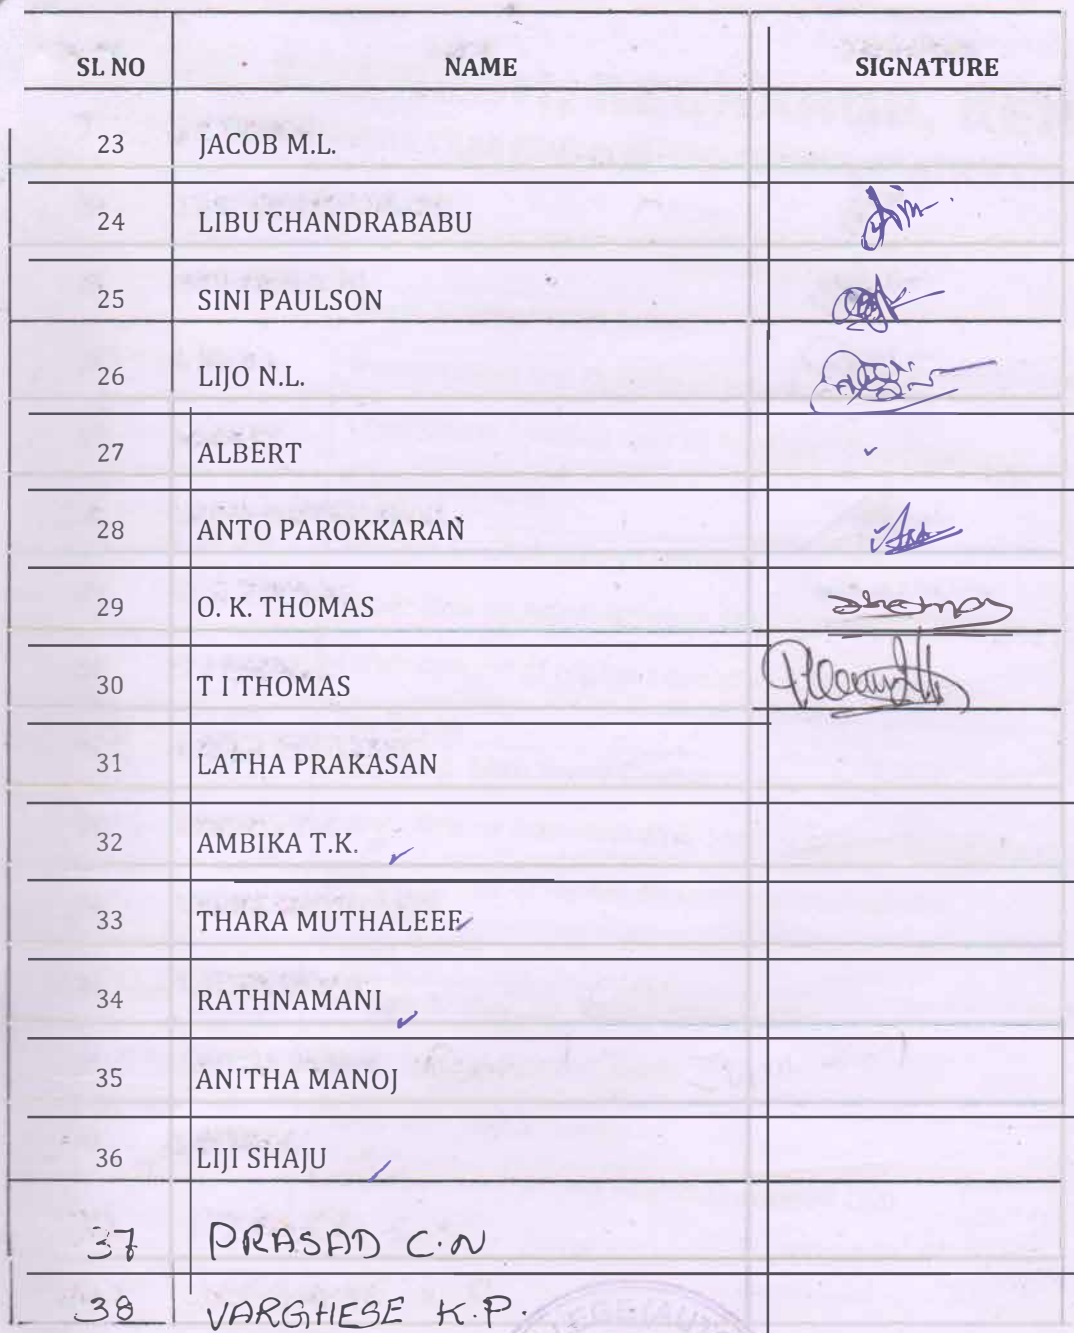 SL NO NAME SIGNATURE
23 JACOB M.L.
24 LIBU CHANDRABABU
25 SINI PAULSON
26 LIJO N.L.
27 ALBERT ✓
28 ANTO PAROKKARAN
29 O. K. THOMAS
30 T I THOMAS
31 LATHA PRAKASAN
32 AMBIKA T.K. ✓
33 THARA MUTHALEEF ✓
34 RATHNAMANI ✓
35 ANITHA MANOJ
36 LIJI SHAJU ✓
37 PRASAD C.N
38 VARGHESE K.P.